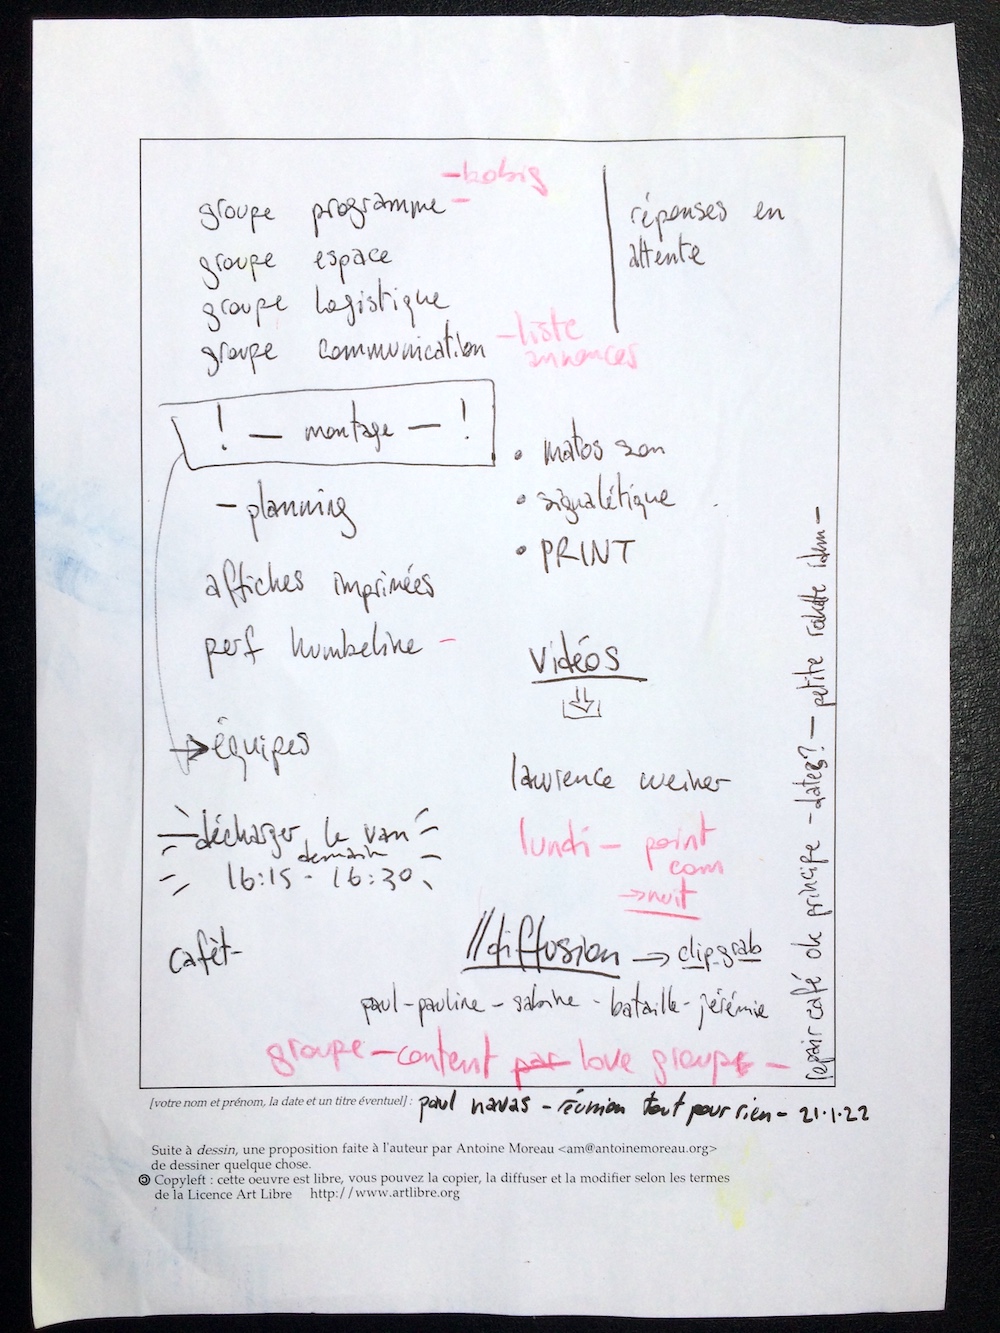 groupe programme -
groupe espace
groupe logistique
groupe communication
réponses en
attente
- liste
annonces
! - montage - !
- planning
affiches imprimées
perf humbeline -
→ équipes
• matos son
• signalétique
• PRINT
vidéos
lawrence weiner
lundi - point
com
→ nuit
- décharger le van
demain
16:15 - 16:30
cafèt-
//diffusion → clipgrab
paul - pauline - sabine - bataille - jérémie
groupe - content par love groupe -
repair café ok principe - dates? - petite
[votre nom et prénom, la date et un titre éventuel] : paul navas - réunion tout pour rien - 21.1.22
Suite à dessin, une proposition faite à l'auteur par Antoine Moreau <am@antoinemoreau.org>
de dessiner quelque chose.
Copyleft : cette oeuvre est libre, vous pouvez la copier, la diffuser et la modifier selon les termes
de la Licence Art Libre http://www.artlibre.org